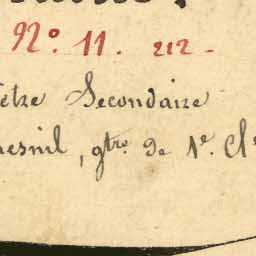 N° 11. 212-
être Secondaire
esnil, gtro de 1e. Cl